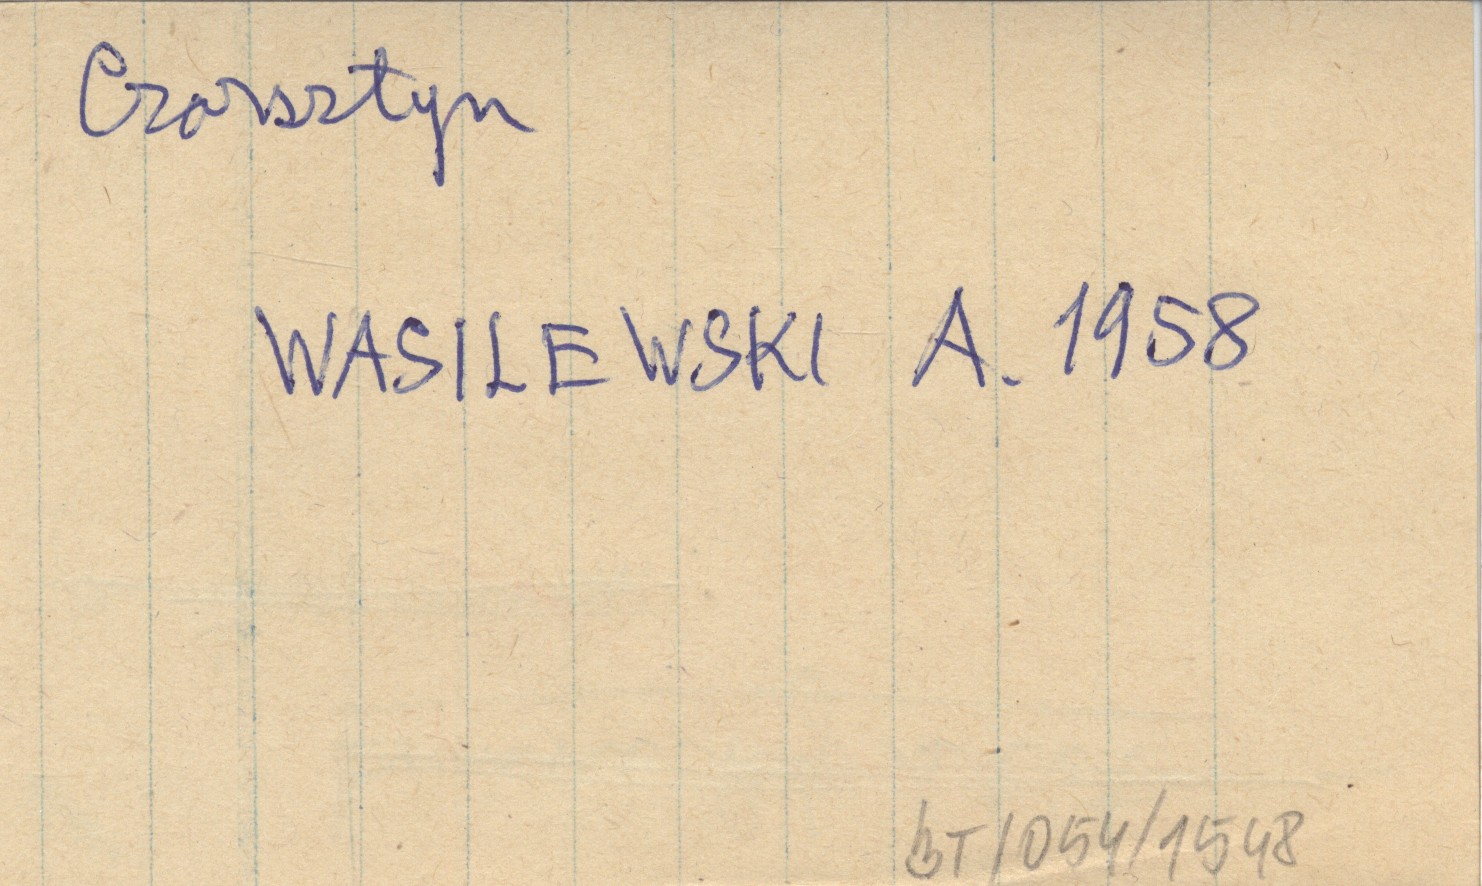 Czorsztyn
WASILEWSKI A. 1958
BT/054/1548